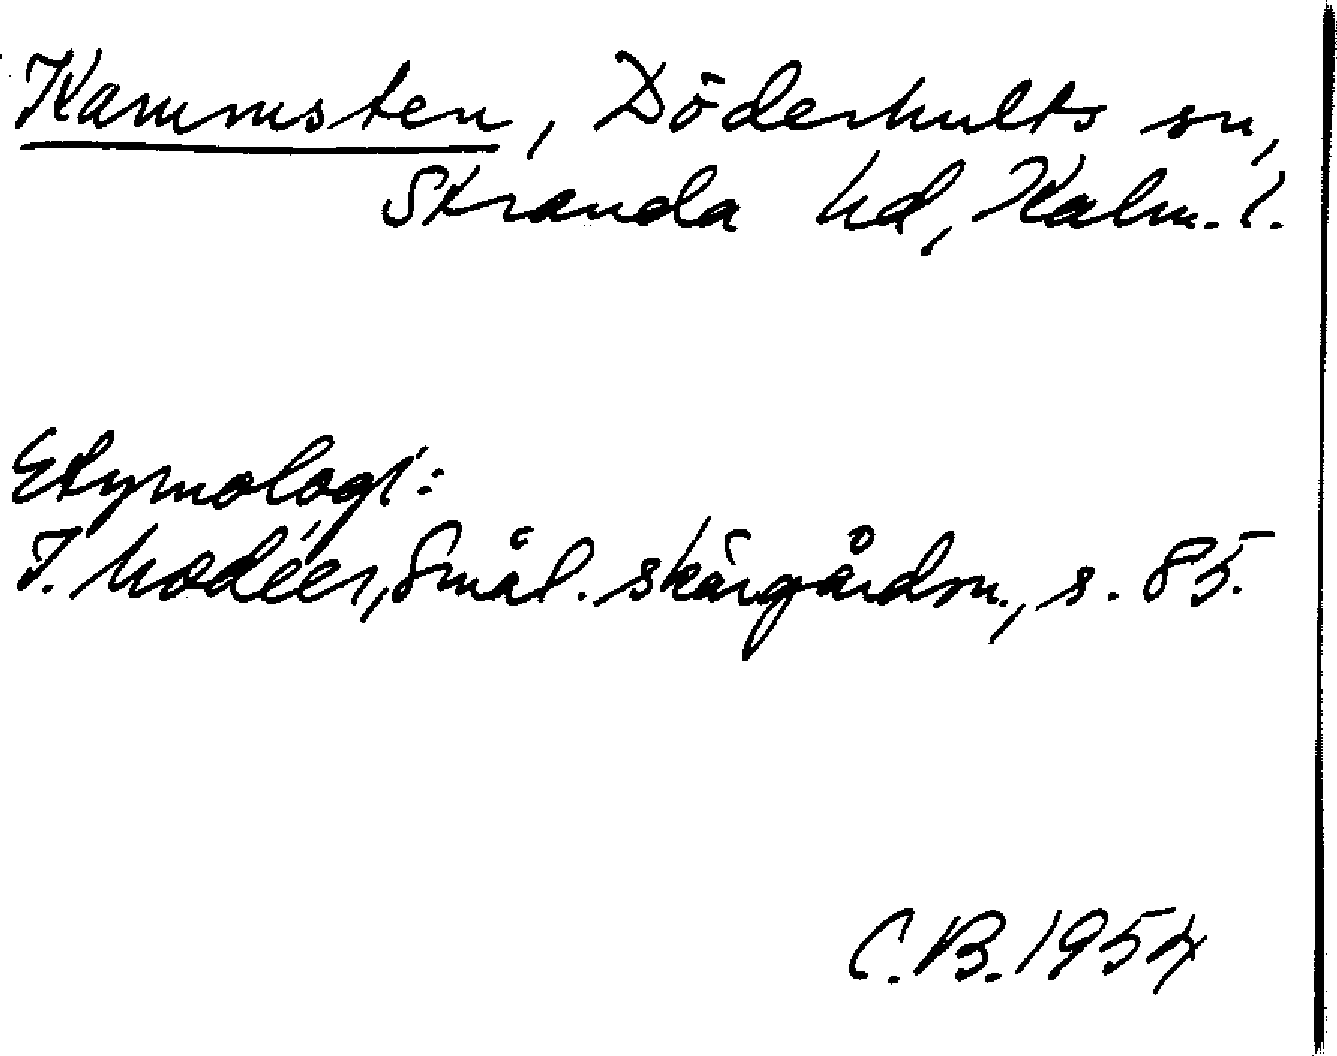 Kammsten, Döderhults sn,
Stranda hd, Kalm. l.
Etymologi:
I. Modéer, Smål. skärgårdsn., s. 85.
C.B. 1954